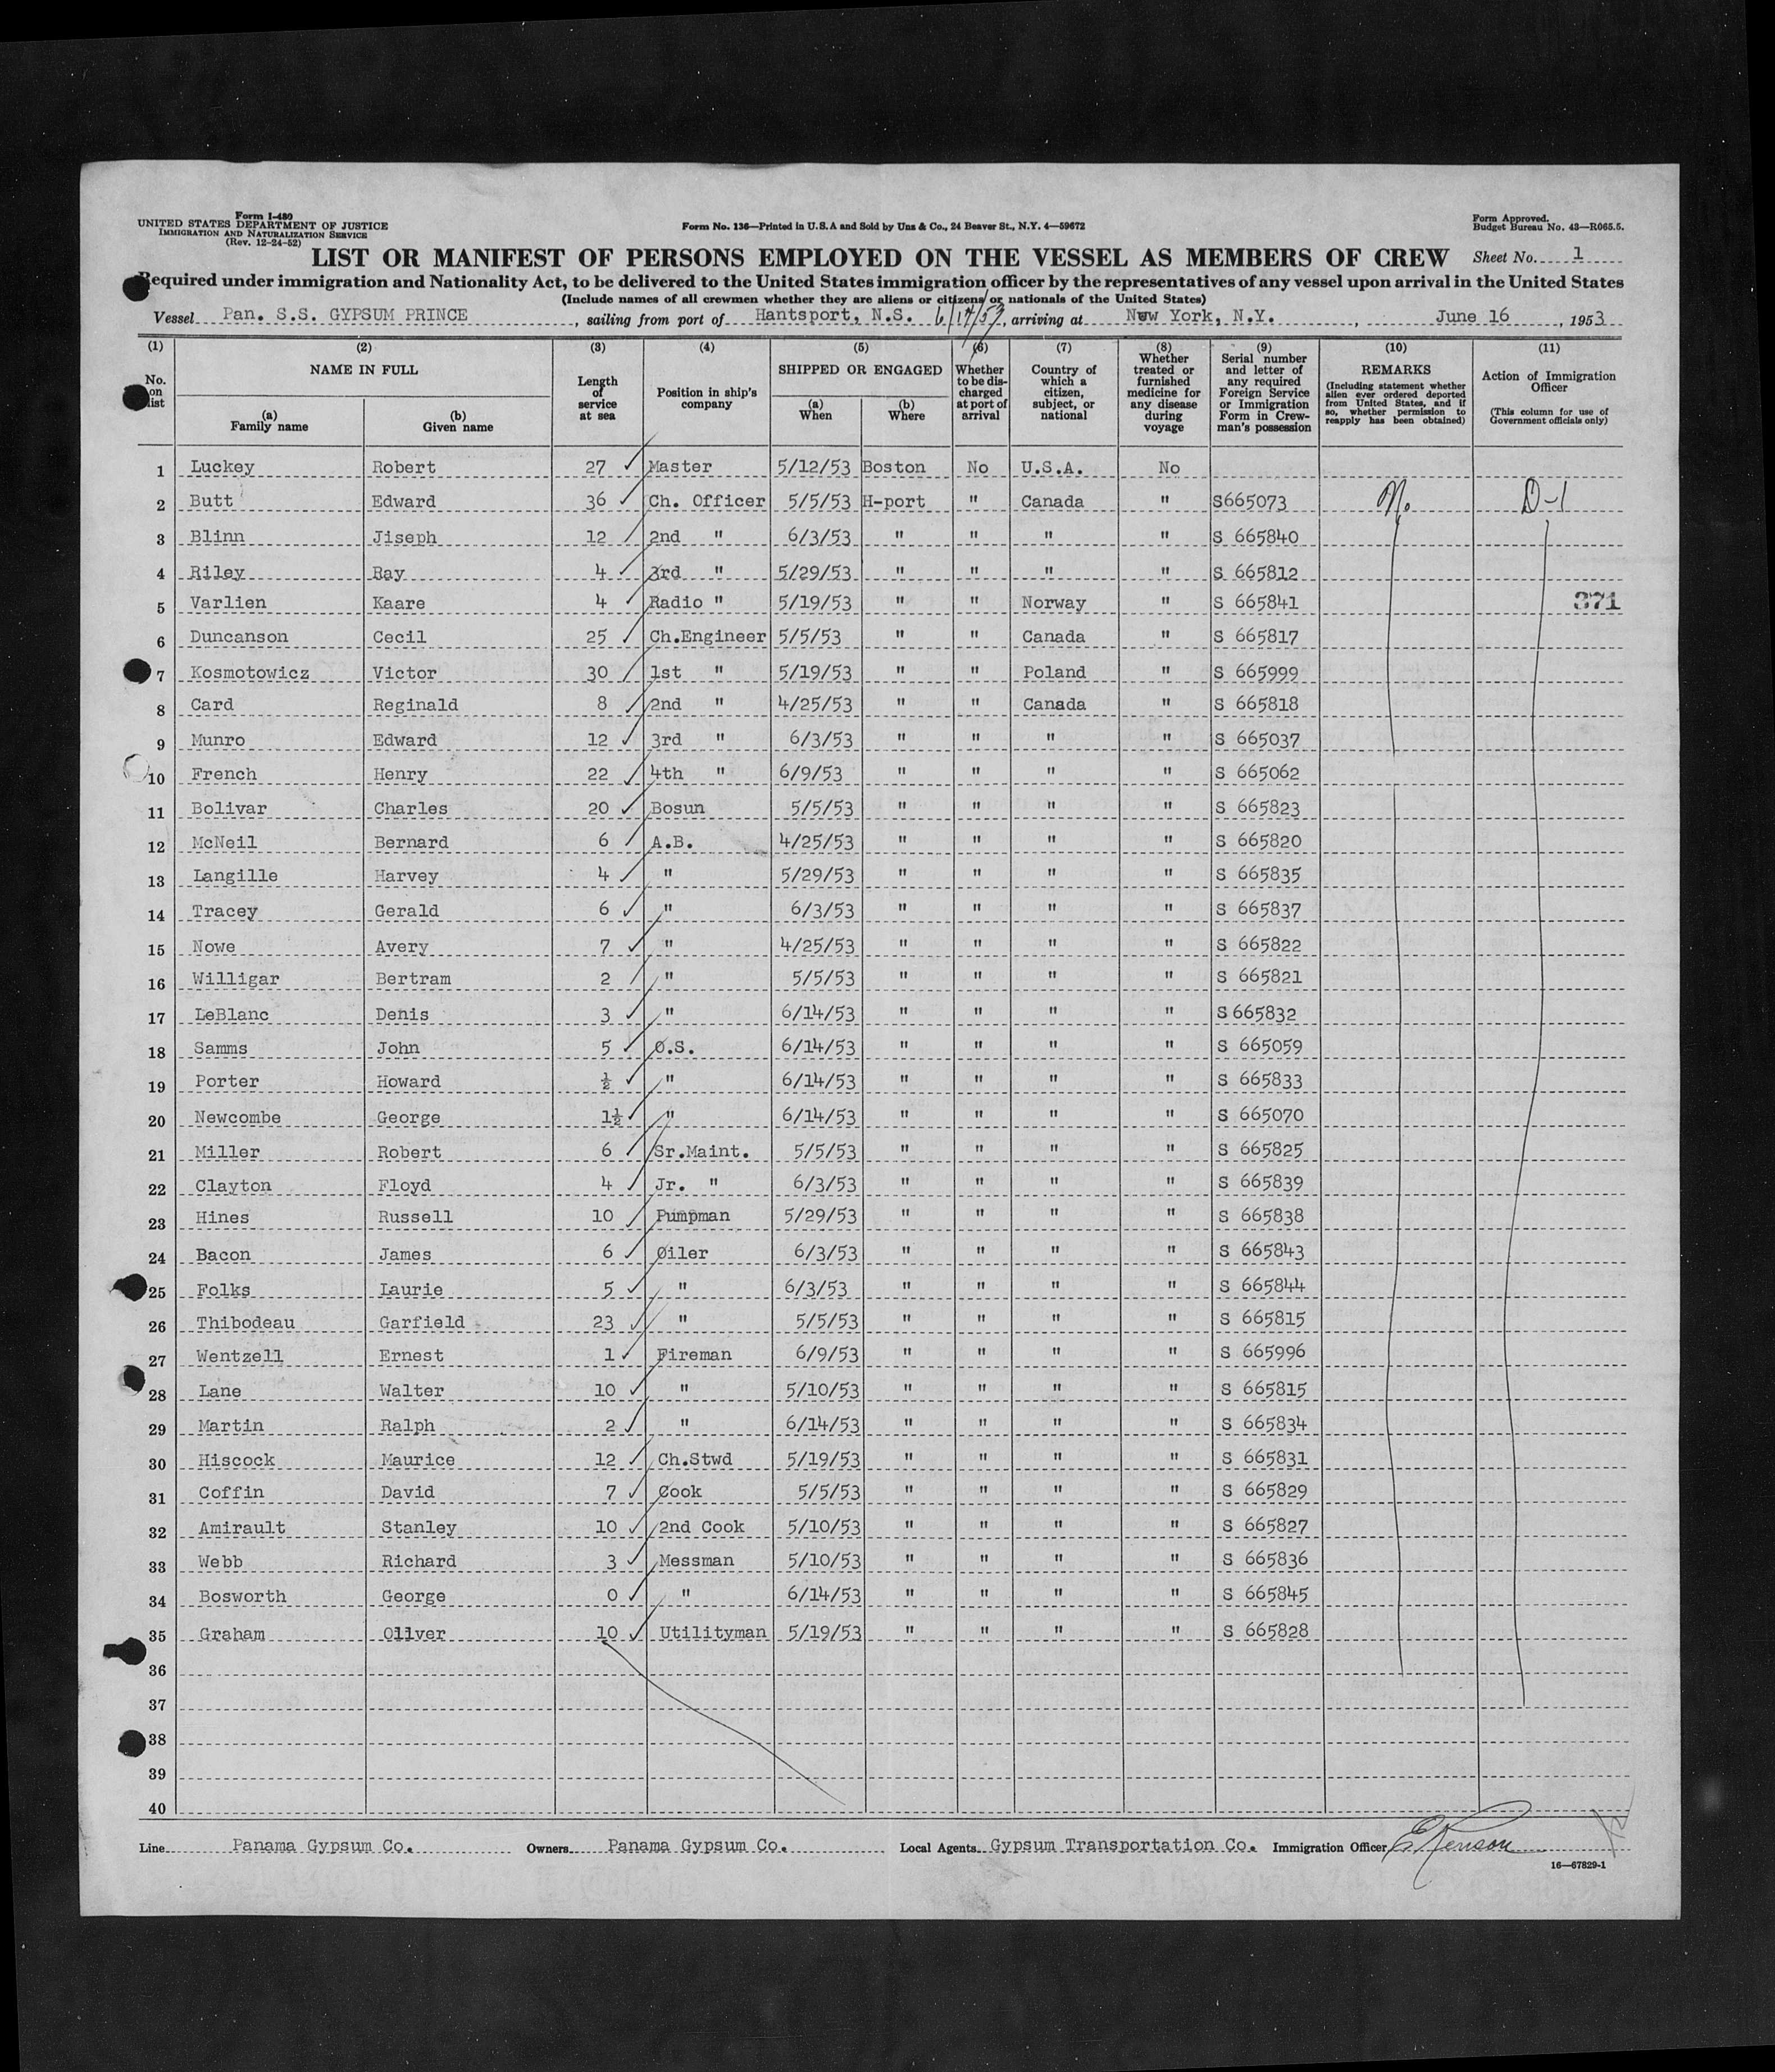 Form I-480
UNITED STATES DEPARTMENT OF JUSTICE
IMMIGRATION AND NATURALIZATION SERVICE
(Rev. 12-24-52)
Form No. 136—Printed in U.S.A and Sold by Unz & Co., 24 Beaver St., N.Y. 4—59672
Form Approved.
Budget Bureau No. 43—R065.5.
LIST OR MANIFEST OF PERSONS EMPLOYED ON THE VESSEL AS MEMBERS OF CREW Sheet No. 1
Required under immigration and Nationality Act, to be delivered to the United States immigration officer by the representatives of any vessel upon arrival in the United States
(Include names of all crewmen whether they are aliens or citizens or nationals of the United States)
Vessel Pan. S.S. GYPSUM PRINCE, sailing from port of Hantsport, N.S. 6/14/53, arriving at New York, N.Y., June 16, 1953
(1) (2) (3) (4) (5) (6) (7) (8) (9) (10) (11)
No. on list
NAME IN FULL
(a) Family name
(b) Given name
Length of service at sea
Position in ship's company
SHIPPED OR ENGAGED
(a) When
(b) Where
Whether to be discharged at port of arrival
Country of which a citizen, subject, or national
Whether treated or furnished medicine for any disease during voyage
Serial number and letter of any required Foreign Service or Immigration Form in Crewman's possession
REMARKS
(Including statement whether alien ever ordered deported from United States, and if so, whether permission to reapply has been obtained)
Action of Immigration Officer
(This column for use of Government officials only)
1 Luckey Robert 27 ✓ Master 5/12/53 Boston No U.S.A. No
2 Butt Edward 36 ✓ Ch. Officer 5/5/53 H-port " Canada " S665073 No D-1
3 Blinn Jiseph 12 ✓ 2nd " 6/3/53 " " " " S 665840
4 Riley Ray 4 ✓ 3rd " 5/29/53 " " " " S 665812
5 Varlien Kaare 4 ✓ Radio " 5/19/53 " " Norway " S 665841 371
6 Duncanson Cecil 25 ✓ Ch.Engineer 5/5/53 " " Canada " S 665817
7 Kosmotowicz Victor 30 ✓ 1st " 5/19/53 " " Poland " S 665999
8 Card Reginald 8 ✓ 2nd " 4/25/53 " " Canada " S 665818
9 Munro Edward 12 ✓ 3rd " 6/3/53 " " " " S 665037
10 French Henry 22 ✓ 4th " 6/9/53 " " " " S 665062
11 Bolivar Charles 20 ✓ Bosun 5/5/53 " " " " S 665823
12 McNeil Bernard 6 ✓ A.B. 4/25/53 " " " " S 665820
13 Langille Harvey 4 ✓ " 5/29/53 " " " " S 665835
14 Tracey Gerald 6 ✓ " 6/3/53 " " " " S 665837
15 Nowe Avery 7 ✓ " 4/25/53 " " " " S 665822
16 Willigar Bertram 2 ✓ " 5/5/53 " " " " S 665821
17 LeBlanc Denis 3 ✓ " 6/14/53 " " " " S 665832
18 Samms John 5 ✓ O.S. 6/14/53 " " " " S 665059
19 Porter Howard ½ ✓ " 6/14/53 " " " " S 665833
20 Newcombe George 1½ ✓ " 6/14/53 " " " " S 665070
21 Miller Robert 6 ✓ Sr.Maint. 5/5/53 " " " " S 665825
22 Clayton Floyd 4 ✓ Jr. " 6/3/53 " " " " S 665839
23 Hines Russell 10 ✓ Pumpman 5/29/53 " " " " S 665838
24 Bacon James 6 ✓ Oiler 6/3/53 " " " " S 665843
25 Folks Laurie 5 ✓ " 6/3/53 " " " " S 665844
26 Thibodeau Garfield 23 ✓ " 5/5/53 " " " " S 665815
27 Wentzell Ernest 1 ✓ Fireman 6/9/53 " " " " S 665996
28 Lane Walter 10 ✓ " 5/10/53 " " " " S 665815
29 Martin Ralph 2 ✓ " 6/14/53 " " " " S 665834
30 Hiscock Maurice 12 ✓ Ch.Stwd 5/19/53 " " " " S 665831
31 Coffin David 7 ✓ Cook 5/5/53 " " " " S 665829
32 Amirault Stanley 10 ✓ 2nd Cook 5/10/53 " " " " S 665827
33 Webb Richard 3 ✓ Messman 5/10/53 " " " " S 665836
34 Bosworth George 0 ✓ " 6/14/53 " " " " S 665845
35 Graham Oliver 10 ✓ Utilityman 5/19/53 " " " " S 665828
36
37
38
39
40
Line Panama Gypsum Co. Owners Panama Gypsum Co. Local Agents Gypsum Transportation Co. Immigration Officer
16—67829-1